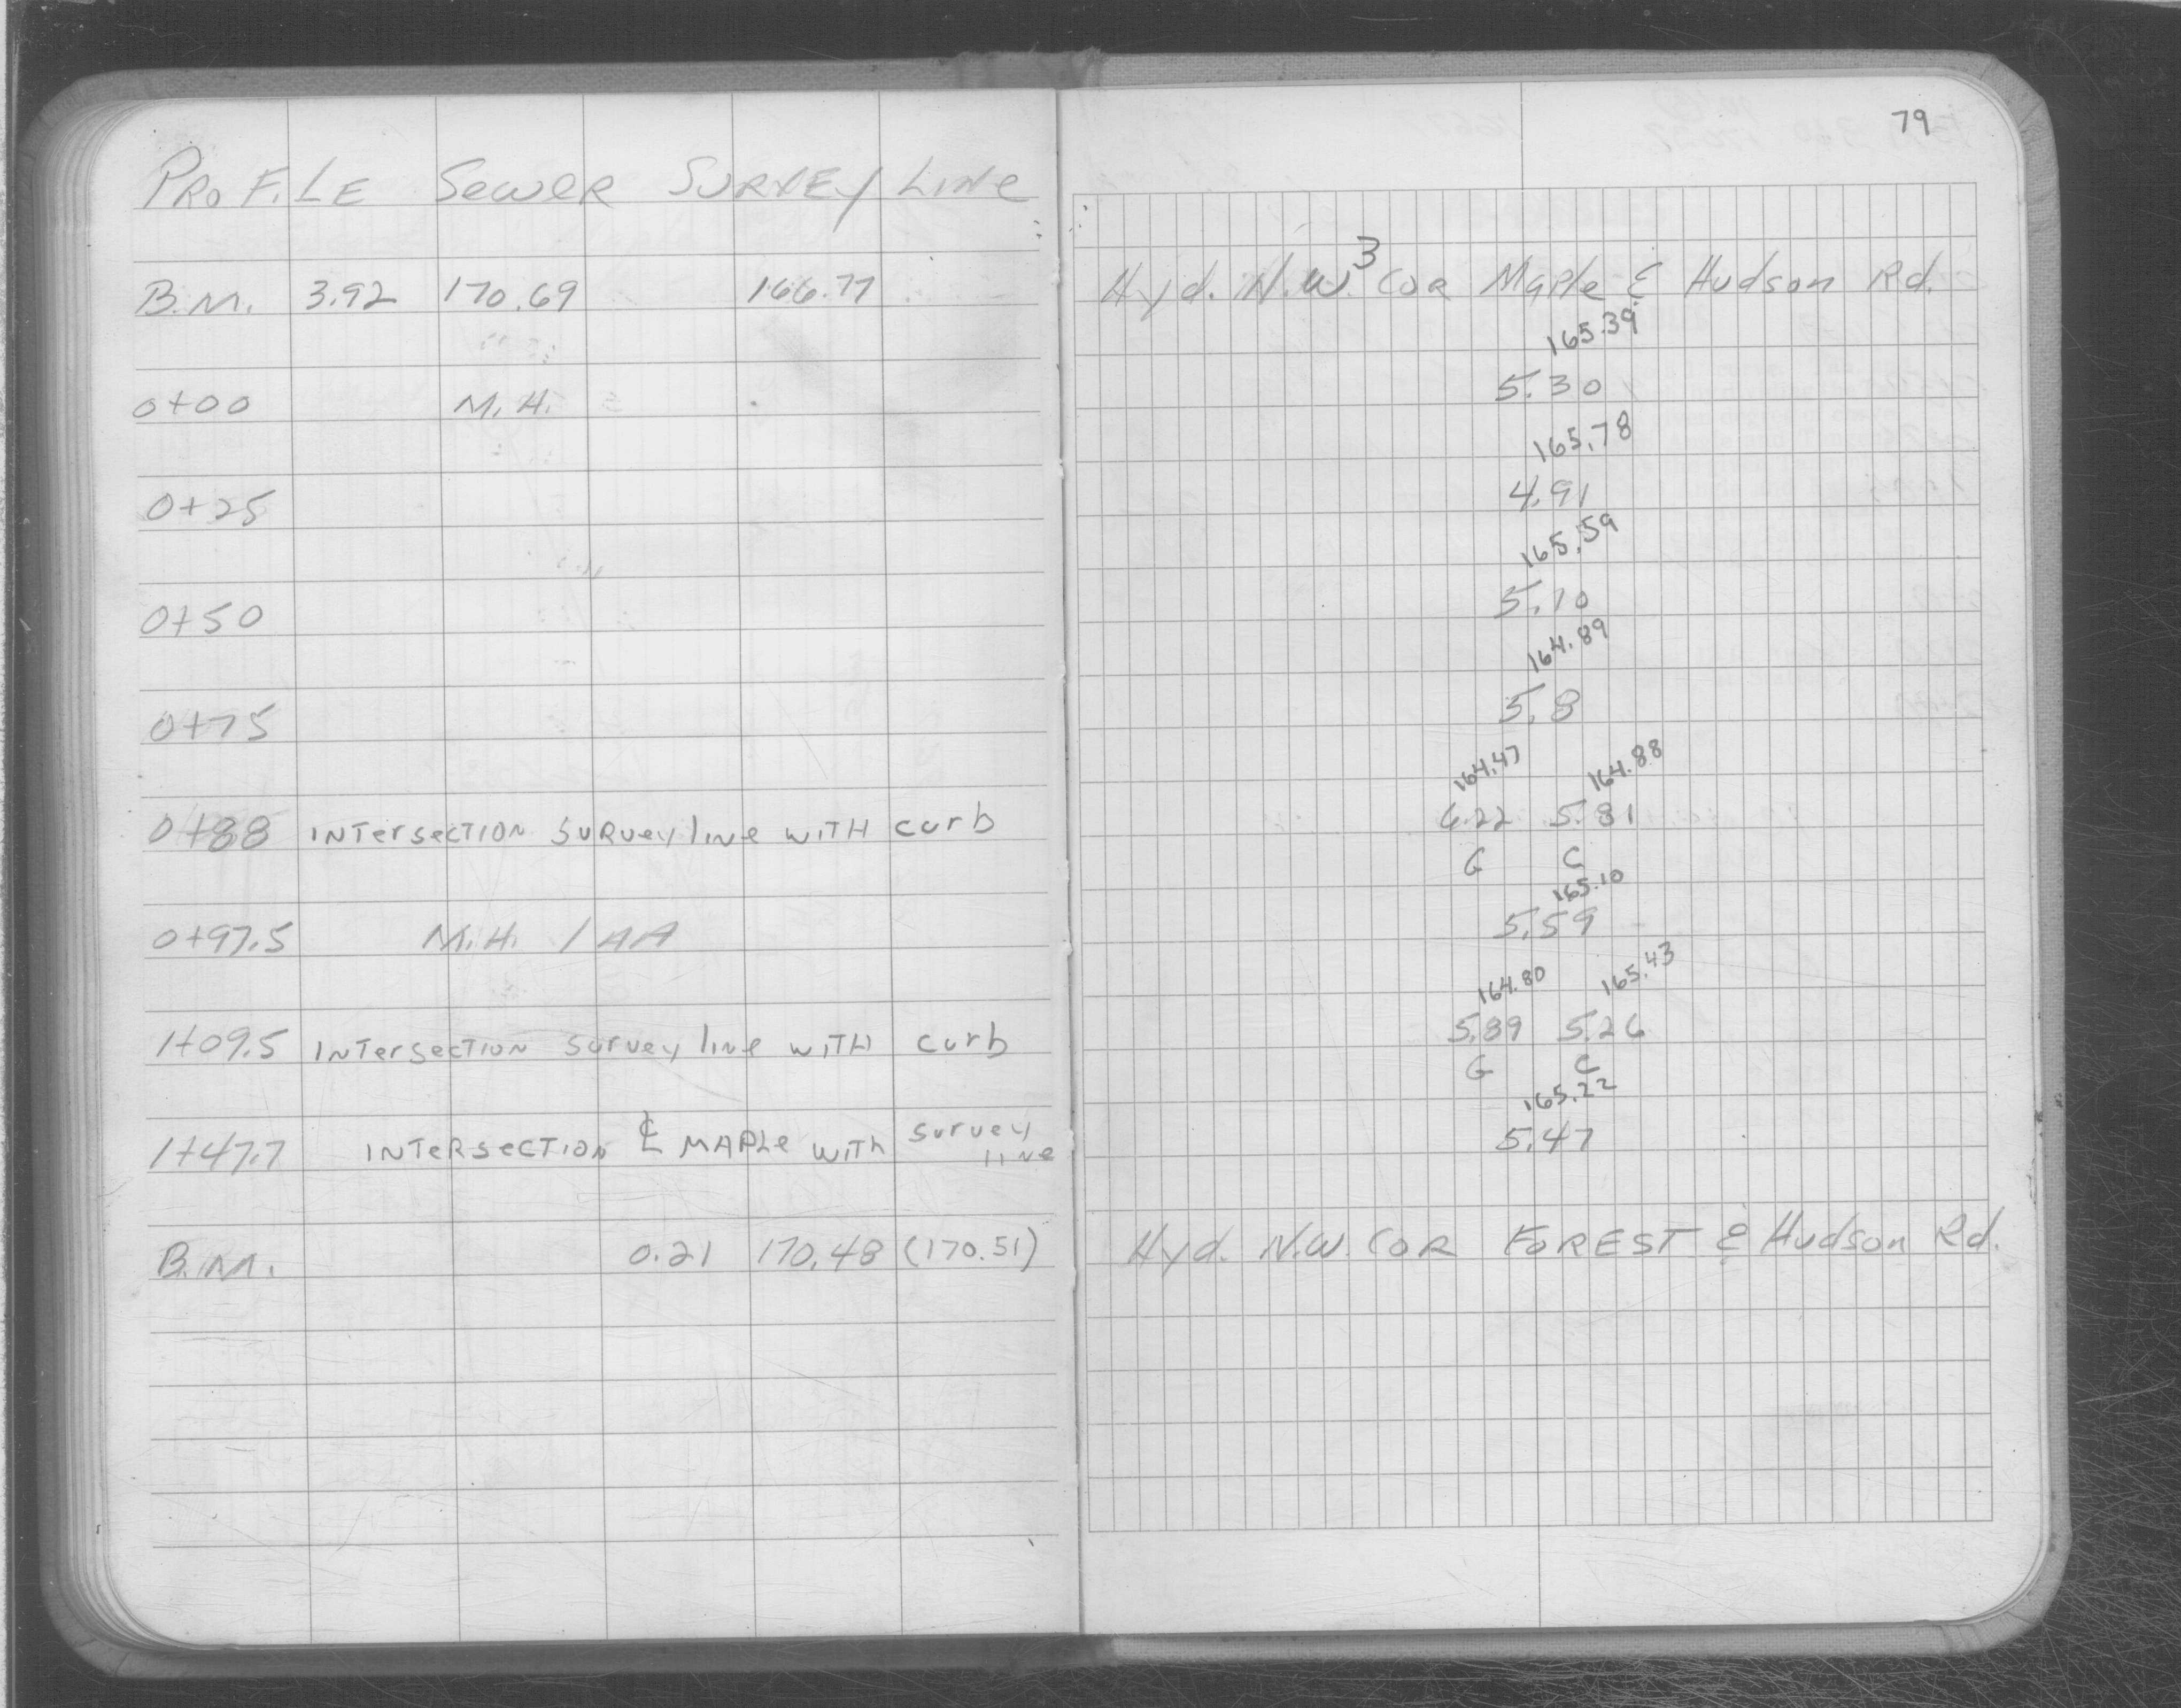 79
PROFILE SEWER SURVEY LINE
B.M. 3.92 170.69 166.77 Hyd. N.W. 3 COR Maple & Hudson Rd.
165.39
0+00 M.H. 5.30
165.78
0+25 4.91
165.59
0+50 5.10
164.89
0+75 5.8
164.47 164.88
0+88 INTERSECTION SURVEY LINE WITH curb 6.22 5.81
G C
165.10
0+97.5 M.H. 1AA 5.59
164.80 165.43
1+09.5 INTERSECTION SURVEY LINE WITH curb 5.89 5.26
G C
165.22
1+47.7 INTERSECTION ℄ MAPLE WITH survey line 5.47
B.M. 0.21 170.48 (170.51) Hyd. N.W. COR FOREST & Hudson Rd.